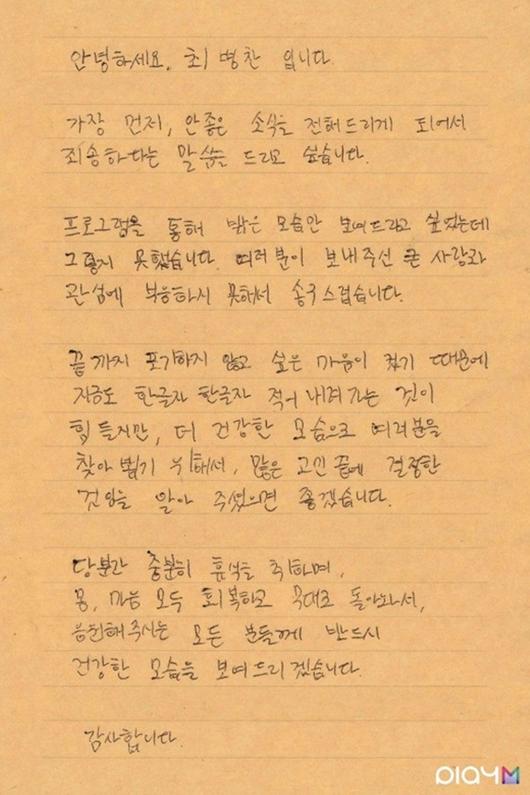 안녕하세요. 최병찬 입니다.
가장 먼저, 안좋은 소식을 전해드리게 되어서
죄송하다는 말씀을 드리고 싶습니다.
프로그램을 통해 밝은 모습만 보여드리고 싶었는데
그렇지 못했습니다. 여러분이 보내주신 큰 사랑과
관심에 부응하지 못해서 송구스럽습니다.
끝까지 포기하지 않고 싶은 마음이 컸기 때문에
지금도 한글자 한글자 적어 내려가는 것이
힘들지만, 더 건강한 모습으로 여러분을
찾아 뵙기 위해서, 많은 고민 끝에 결정한
것임을 알아 주셨으면 좋겠습니다.
당분간 충분히 휴식을 취하며,
몸, 마음 모두 회복하고 무대로 돌아와서,
응원해주시는 모든 분들께 반드시
건강한 모습을 보여드리겠습니다.
감사합니다.
playM